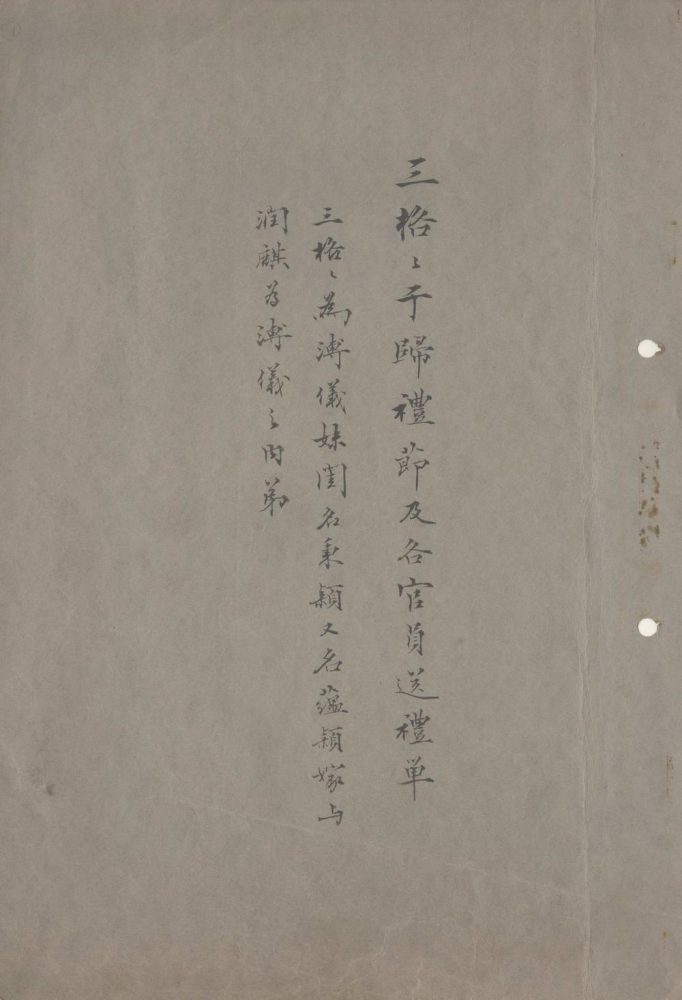 三格〻于歸禮節及各官員送禮单
三格〻為溥儀妹閨名秉颖又名蕴颖嫁与
润麒为溥儀之内弟